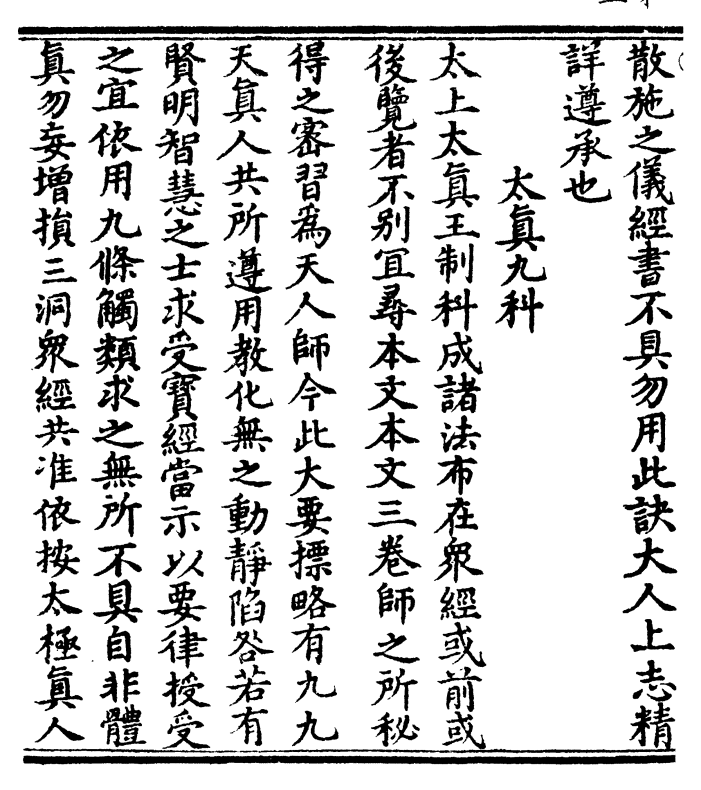 散施之儀經書不具勿用此訣大人上志精
詳遵承也
太眞九科
太上太眞王制科成諸法布在衆經或前或
後覽者不別宜尋本文本文三卷師之所秘
得之密習爲天人師今此大要摽略有九九
天眞人共所遵用教化無之動靜陷咎若有
賢明智慧之士求受寶經當示以要律授受
之宜依用九條觸類求之無所不具自非體
眞勿妄增損三洞衆經共准依按太極眞人